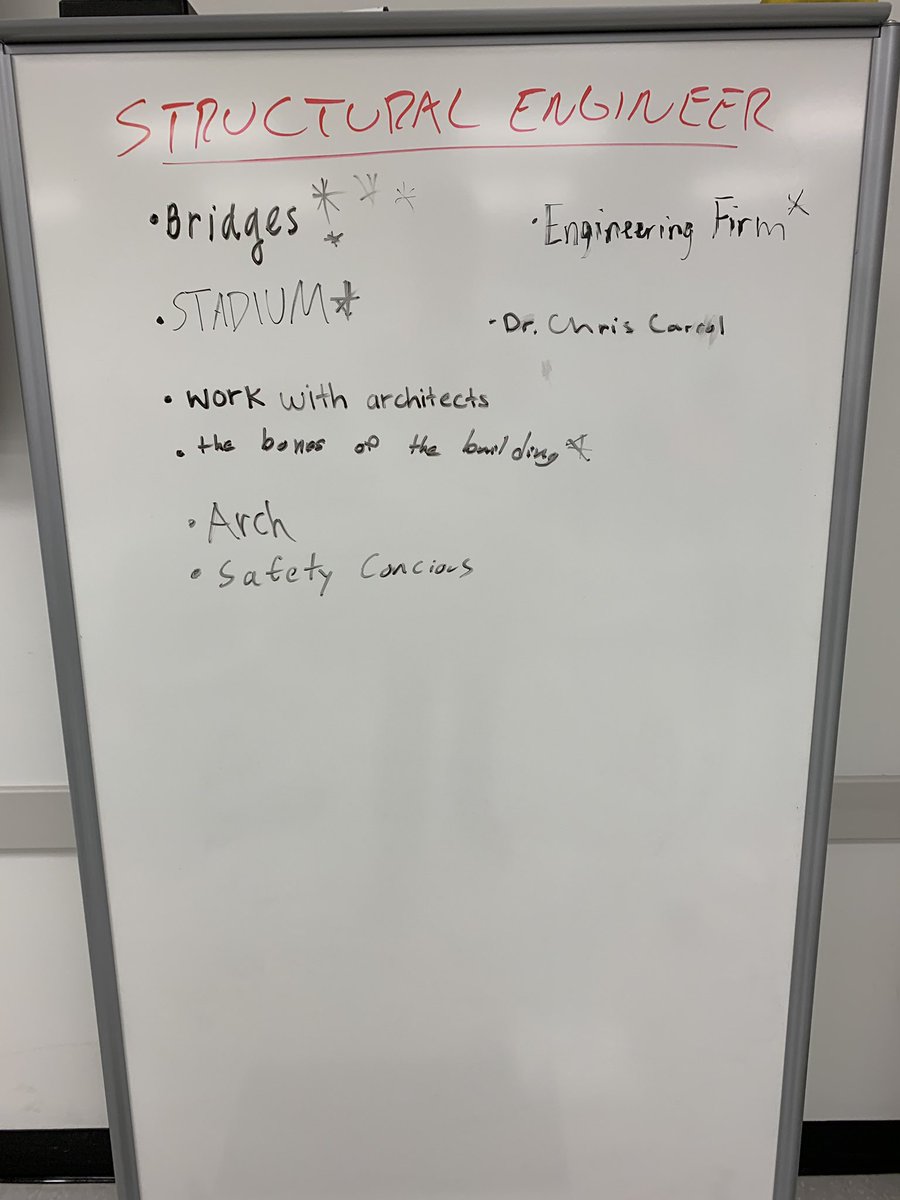 STRUCTURAL ENGINEER
• Bridges * * * *
• Engineering Firm *
• STADIUM *
• Dr. Chris Carrol
• Work with architects
• the bones of the building *
• Arch
• Safety Concious